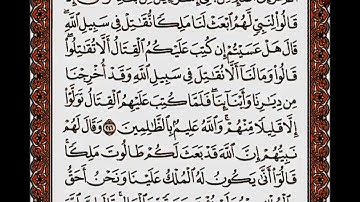 قَالُوا۟ لِنَبِىٍّ لَّهُمُ ٱبْعَثْ لَنَا مَلِكًا نُّقَـٰتِلْ فِى سَبِيلِ ٱللَّهِ
قَالَ هَلْ عَسَيْتُمْ إِن كُتِبَ عَلَيْكُمُ ٱلْقِتَالُ أَلَّا تُقَـٰتِلُوا۟
قَالُوا۟ وَمَا لَنَآ أَلَّا نُقَـٰتِلَ فِى سَبِيلِ ٱللَّهِ وَقَدْ أُخْرِجْنَا
مِن دِيَـٰرِنَا وَأَبْنَآئِنَا فَلَمَّا كُتِبَ عَلَيْهِمُ ٱلْقِتَالُ تَوَلَّوْا۟
إِلَّا قَلِيلًا مِّنْهُمْ وَٱللَّهُ عَلِيمٌۢ بِٱلظَّـٰلِمِينَ ٢٤٦ وَقَالَ لَهُمْ
نَبِيُّهُمْ إِنَّ ٱللَّهَ قَدْ بَعَثَ لَكُمْ طَالُوتَ مَلِكًا
قَالُوٓا۟ أَنَّىٰ يَكُونُ لَهُ ٱلْمُلْكُ عَلَيْنَا وَنَحْنُ أَحَقُّ